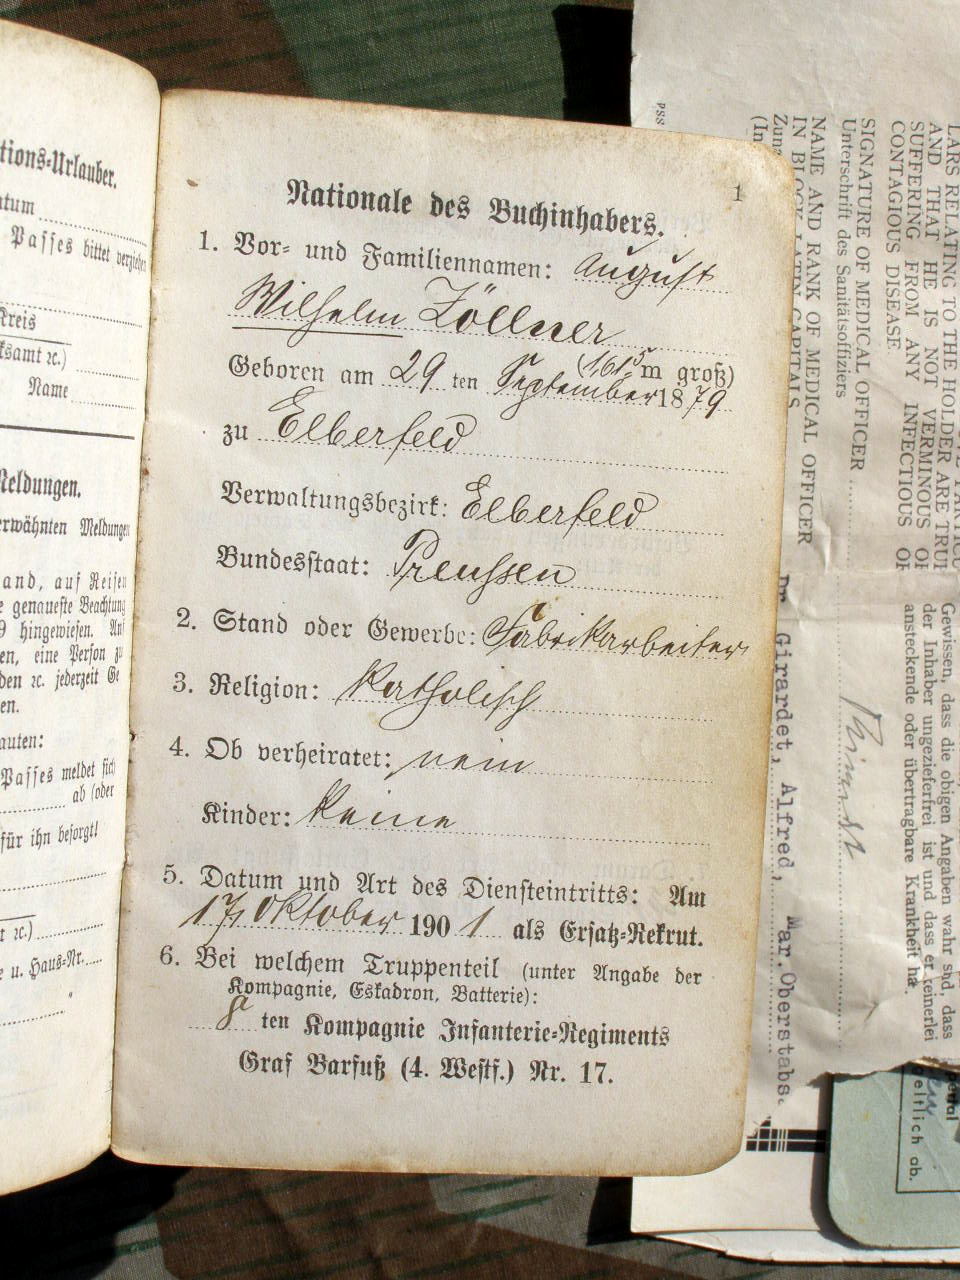 tions-Urlauber.
tum
Passes bittet
kreis
ksamt ꝛc.)
Name
Meldungen.
erwähnten Meldungen
and, auf Reisen
genaueste Beachtung
9 hingewiesen.
en, eine Person zu
den ꝛc. jederzeit
en.
auten:
Passes meldet sich
ab (oder
für ihn besorgt!
ꝛc.)
u. Haus-Nr.
1
Nationale des Buchinhabers.
1. Vor- und Familiennamen: August
Wilhelm Zöllner
(1,61⁵m groß)
Geboren am 29 ten September 1879
zu Elberfeld
Verwaltungsbezirk: Elberfeld
Bundesstaat: Preussen
2. Stand oder Gewerbe: Fabrikarbeiter
3. Religion: Katholisch
4. Ob verheiratet: nein
Kinder: Keine
5. Datum und Art des Diensteintritts: Am
17. Oktober 1901 als Ersatz-Rekrut.
6. Bei welchem Truppenteil (unter Angabe der
Kompagnie, Eskadron, Batterie):
ten Kompagnie Infanterie-Regiments
Graf Barfuß (4. Westf.) Nr. 17.
LARS RELATING TO THE HOLDER ARE TRUE
AND THAT HE IS NOT VERMINOUS OR
SUFFERING FROM ANY INFECTIOUS OR
CONTAGIOUS DISEASE.
Gewissen, dass die obigen Angaben wahr sind, dass
der Inhaber ungezieferfrei ist und dass er keinerlei
ansteckende oder übertragbare Krankheit hat.
SIGNATURE OF MEDICAL OFFICER
Unterschrift des Sanitätsoffiziers
NAME AND RANK OF MEDICAL OFFICER
IN BLOCK LATIN CAPITALS
Dr. Girardet, Alfred, Mar.Oberstabs.
(In